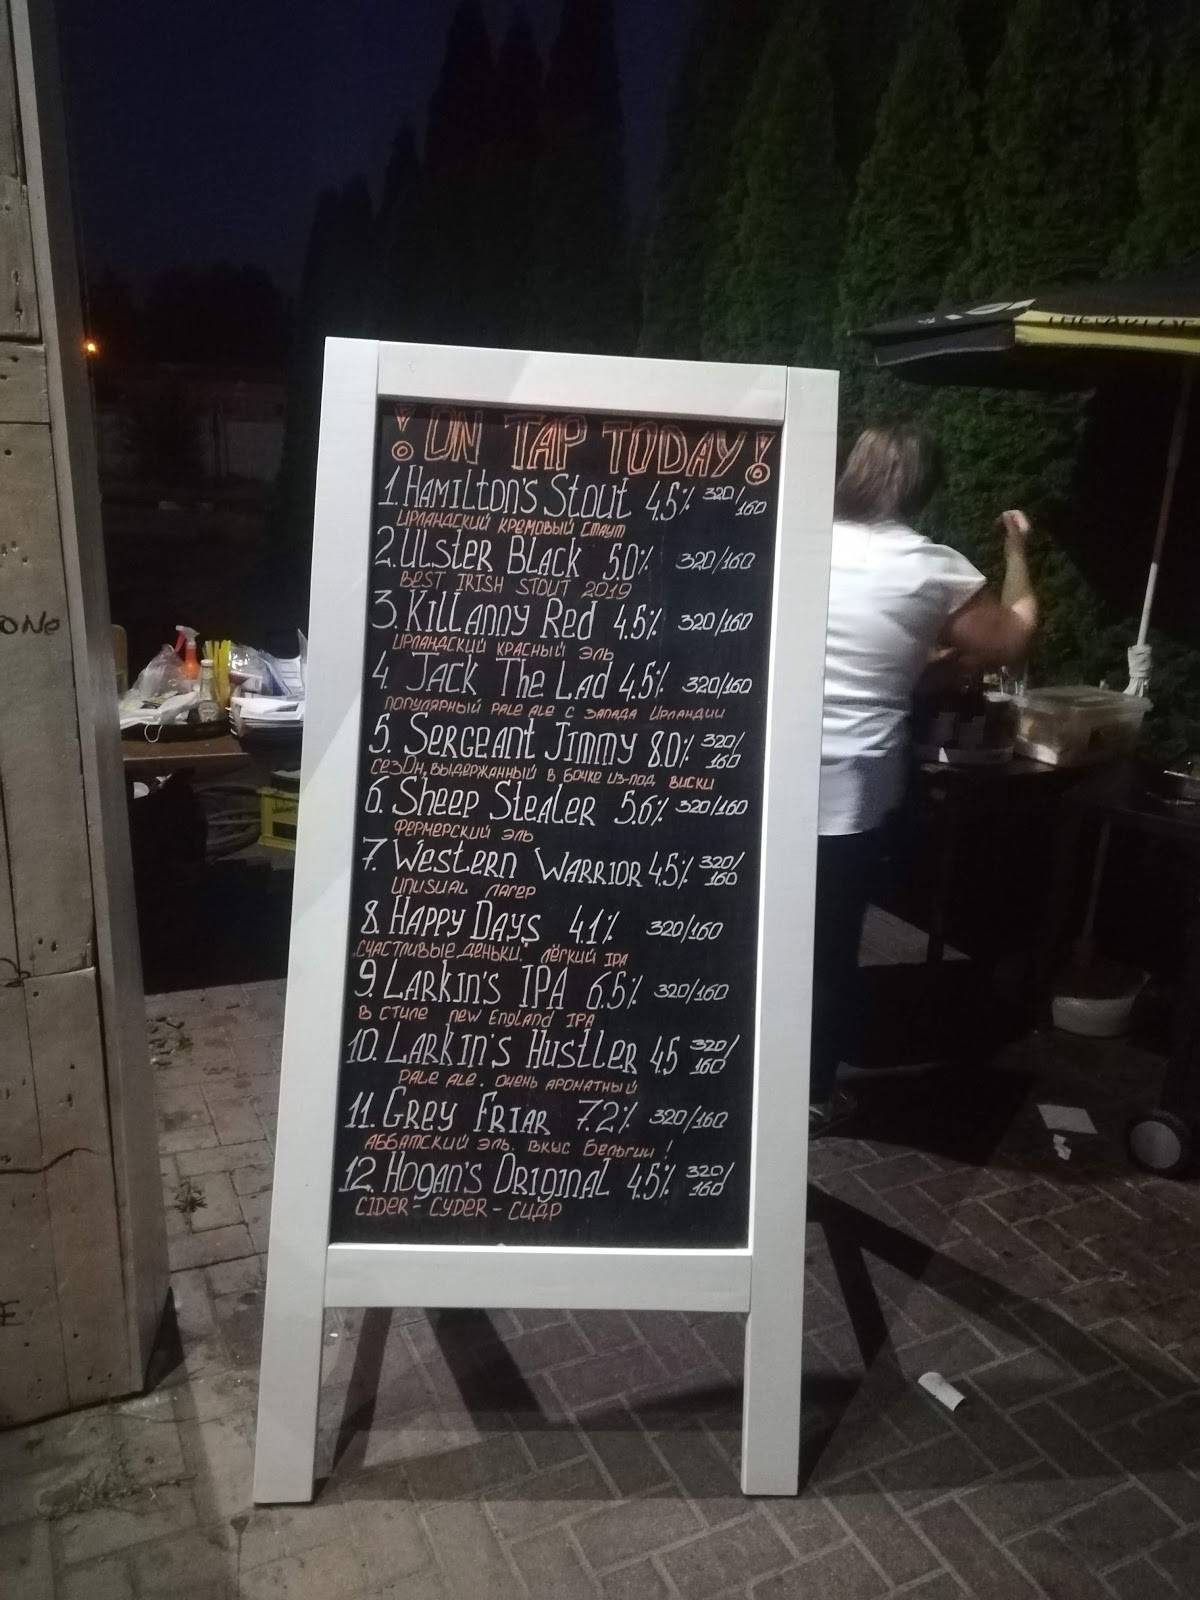 ! ON TAP TODAY !
1. HAMILTON'S STOUT 4.5% 320/160
ИРЛАНДСКИЙ КРЕМОВЫЙ СТАУТ
2. ULSTER BLACK 5.0% 320/160
BEST IRISH STOUT 2019
3. KILLANNY RED 4.5% 320/160
ИРЛАНДСКИЙ КРАСНЫЙ ЭЛЬ
4. JACK THE LAD 4.5% 320/160
ПОПУЛЯРНЫЙ PALE ALE С ЗАПАДА ИРЛАНДИИ
5. SERGEANT JIMMY 8.0% 320/160
СЕЗОН, ВЫДЕРЖАННЫЙ В БОЧКЕ ИЗ-ПОД ВИСКИ
6. SHEEP STEALER 5.6% 320/160
ФЕРМЕРСКИЙ ЭЛЬ
7. WESTERN WARRIOR 4.5% 320/160
UNUSUAL ЛАГЕР
8. HAPPY DAYS 4.1% 320/160
"СЧАСТЛИВЫЕ ДЕНЬКИ." ЛЁГКИЙ IPA
9. LARKIN'S IPA 6.5% 320/160
В СТИЛЕ NEW ENGLAND IPA
10. LARKIN'S HUSTLER 4.5 320/160
PALE ALE. ОЧЕНЬ АРОМАТНЫЙ
11. GREY FRIAR 7.2% 320/160
АББАТСКИЙ ЭЛЬ. ВКУС БЕЛЬГИИ!
12. HOGAN'S ORIGINAL 4.5% 320/160
CIDER - CYDER - СИДР